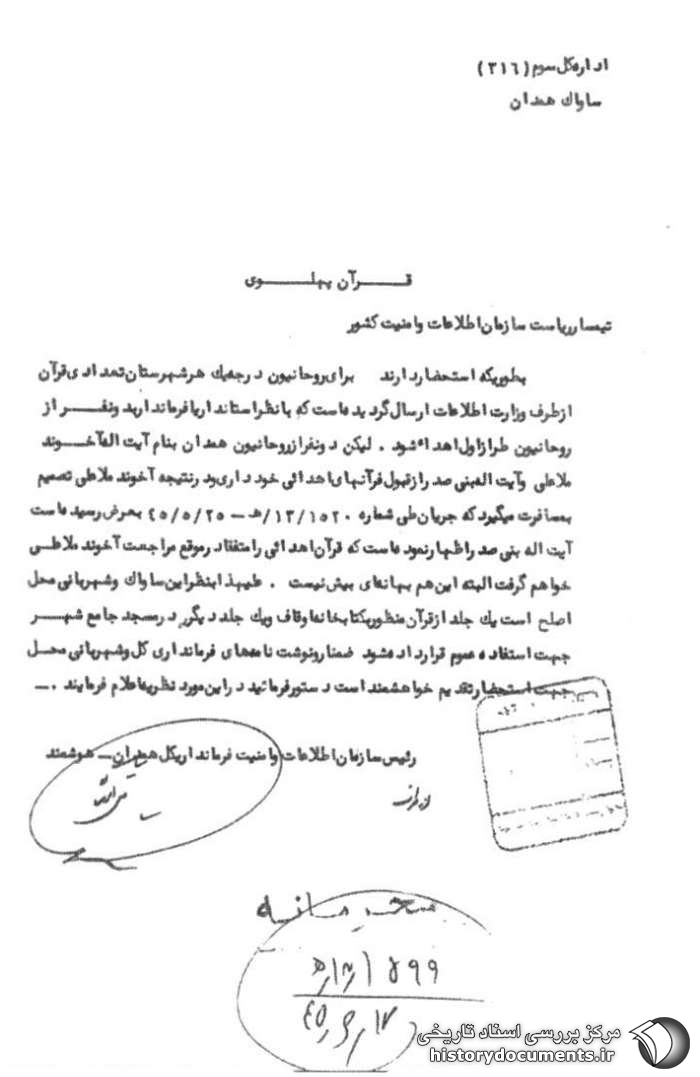 اداره کل سوم (۳۱۶)
ساواك همدان
قرآن پهلوی
تیمسار ریاست سازمان اطلاعات وامنیت کشور
بطوریکه استحضار دارند برای روحانیون درجه یك هر شهرستان تعدادی قرآن
از طرف وزارت اطلاعات ارسال گردیده است که با نظر استاندار یا فرماندار بدونفر از
روحانیون طراز اول اهداء شود . لیکن دونفر از روحانیون همدان بنام آیت اله آخوند
ملاعلی وآیت اله بنی صدر از قبول قرآنهای اهدائی خودداری ودر نتیجه آخوند ملاعلی تصمیم
به مسافرت میگیرد که جریان طی شماره ۱۵۲۰/۱۳/هـ - ۴۵/۵/۲۵ بعرض رسیده است
آیت اله بنی صدر اظهار نموده است که قرآن اهدائی را متفقا در موقع مراجعت آخوند ملاعلی
خواهم گرفت البته این هم بهانه ای بیش نیست . علیهذا بنظر این ساواك وشهربانی محل
اصلح است یك جلد از قرآن منظور بکتابخانه اوقاف ویك جلد دیگر در مسجد جامع شهر
جهت استفاده عموم قرار داده شود ضمنا رونوشت نامه های فرمانداری کل وشهربانی محل
جهت استحضار تقدیم خواهشمند است دستور فرمائید در این مورد نظریه اعلام فرمایند . ـ
رئیس سازمان اطلاعات وامنیت فرمانداریکل همدان ـ هوشمند
از طرف
محرمانه
۱۵۹۹
مرکز بررسی اسناد تاریخی
historydocuments.ir